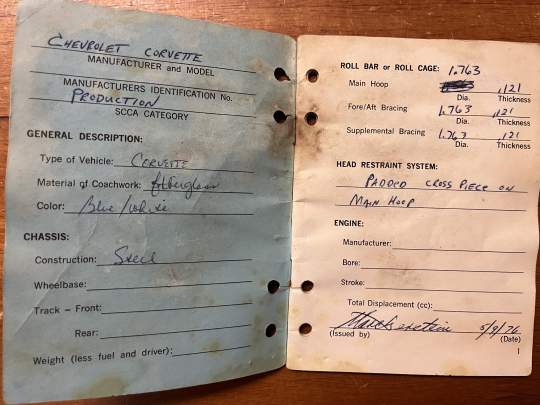 CHEVROLET CORVETTE
MANUFACTURER and MODEL
MANUFACTURERS IDENTIFICATION No.
PRODUCTION
SCCA CATEGORY
GENERAL DESCRIPTION:
Type of Vehicle: CORVETTE
Material of Coachwork: fiberglass
Color: Blue/white
CHASSIS:
Construction: Steel
Wheelbase:
Track - Front:
Rear:
Weight (less fuel and driver):
ROLL BAR or ROLL CAGE: 1.763
Main Hoop .121
Dia. Thickness
Fore/Aft Bracing 1.763 .121
Dia. Thickness
Supplemental Bracing 1.763 .121
Dia. Thickness
HEAD RESTRAINT SYSTEM:
PADDED CROSS PIECE ON
MAIN HOOP
ENGINE:
Manufacturer:
Bore:
Stroke:
Total Displacement (cc):
5/9/76
(Issued by) (Date)
1